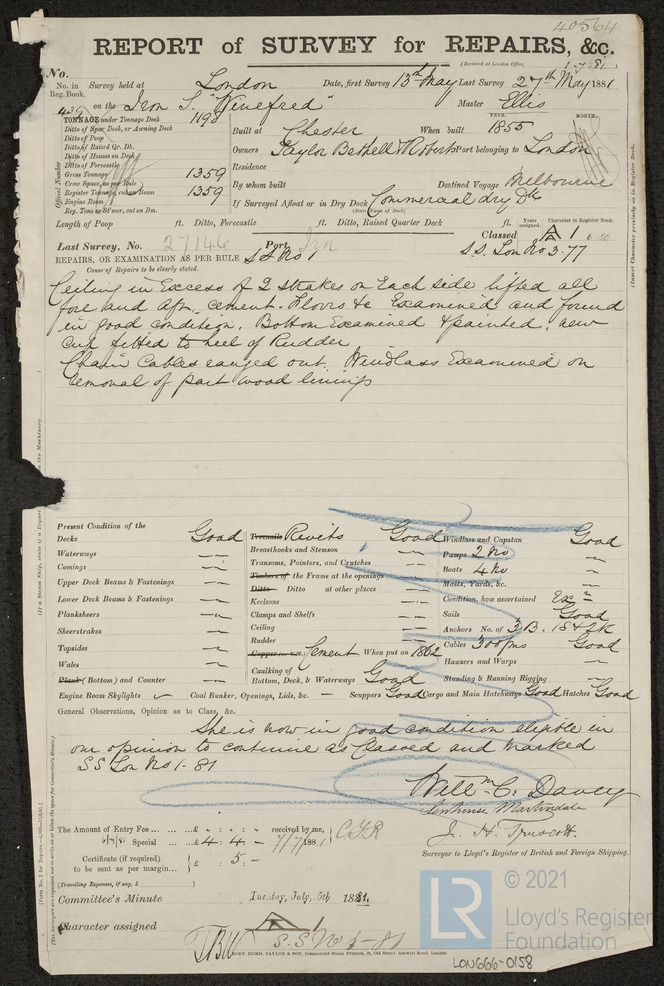 40564
REPORT of SURVEY for REPAIRS, &c.
(Received at London Office, 1-7-81)
No.
No. in Reg. Book. Survey held at London Date, first Survey 13th May Last Survey 27th May 1881
439 on the Iron S. "Winefred" Master Ellis
TONNAGE under Tonnage Deck 1198
Ditto of Spar Deck, or Awning Deck
Ditto of Poop
Ditto of Raised Qr. Dk.
Ditto of Houses on Deck
Ditto of Forecastle
Gross Tonnage 1359
Crew Space, as per Rule
Register Tonnage, cut on Beam 1359
Engine Room
Reg. Ton. as St'mer, cut on Bm.
Official Number
Built at Chester When built YEAR. 1855 MONTH.
Owners Taylor Bethell & Roberts Port belonging to London
Residence
By whom built Destined Voyage Melbourne
If Surveyed Afloat or in Dry Dock Commercial dry Dk
(State name of Dock)
Length of Poop ft. Ditto, Forecastle ft. Ditto, Raised Quarter Deck ft.
Years assigned. Character in Register Book.
Last Survey, No. 27146 Port Lon Classed A 1 6-80
S.S. Lon No 3-77
REPAIRS, OR EXAMINATION AS PER RULE SS No 1
Cause of Repairs to be clearly stated.
Ceiling in Excess of 2 strakes on Each side lifted all
fore and aft, cement. Floors &c Examined and found
in good condition. Bottom Examined & painted. new
cup fitted to heel of Rudder
Chain Cables ranged out. Windlass Examined on
removal of part wood linings
Present Condition of the
Decks Good
Waterways —
Comings —
Upper Deck Beams & Fastenings —
Lower Deck Beams & Fastenings —
Planksheers —
Sheerstrakes —
Topsides —
Wales —
Plank (Bottom) and Counter —
Treenails Rivits Good
Breasthooks and Stemson —
Transoms, Pointers, and Crutches —
Timbers of the Frame at the openings —
Ditto Ditto at other places —
Keelsons —
Clamps and Shelfs —
Ceiling —
Rudder —
Cement When put on 1862
Caulking of Bottom, Deck, & Waterways Good
Windlass and Capstan Good
Pumps 2 No —
Boats 4 No —
Masts, Yards, &c. —
Condition, how ascertained Exn
Sails Good
Anchors No. of 3 B. 1 S & 2 K
Cables 300 fms Good
Hawsers and Warps —
Standing & Running Rigging —
Engine Room Skylights Coal Bunker, Openings, Lids, &c. — Scuppers Good Cargo and Main Hatchways Good Hatches Good
General Observations, Opinion as to Class, &c.
She is now in good condition eligible in
our opinion to continue as Classed and marked
SS Lon No 1-81
Willm C. Davey
J. H. Truscott
Surveyor to Lloyd's Register of British and Foreign Shipping.
The Amount of Entry Fee ... ... £ : : received by me,
Special ... £ 4 : 4 : - 7/7/1881
Certificate (if required) to be sent as per margin... £ : 5 : -
(Travelling Expenses, if any, £ )
Committee's Minute Tuesday, July, 5th 1881.
Character assigned A 1
S.S. No 1-81
LR © 2021
Lloyd's Register
Foundation
LON666-0158